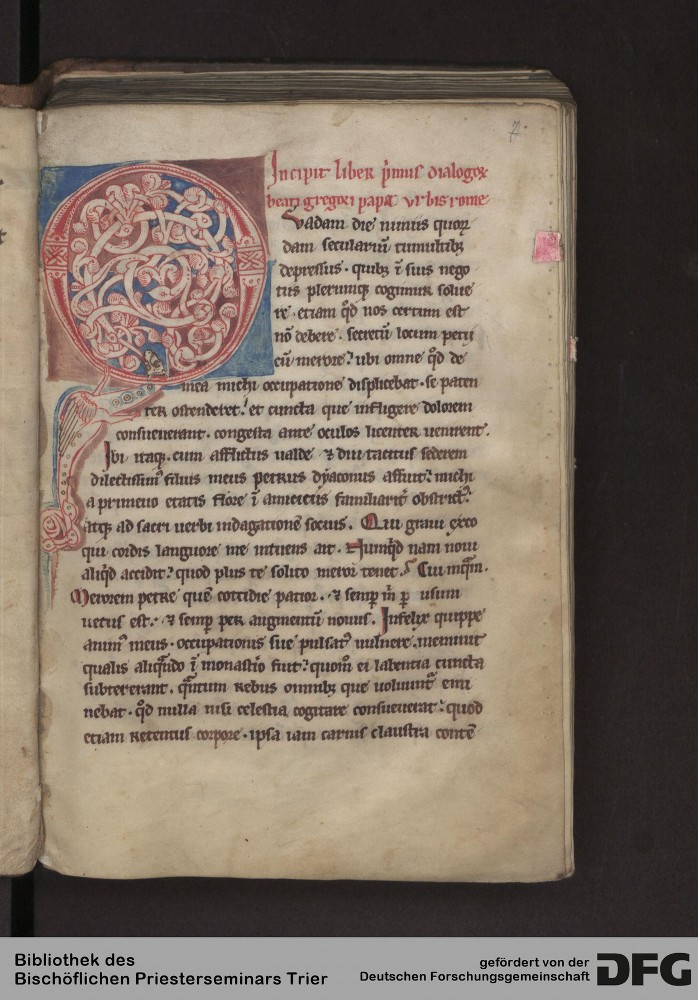 7.
Incipit liber p̄mus dialogoꝝ
beati gregori papę vrbis rome
Vadam die nimiis quoꝝ
dam seculariū tumultibꝫ
depressus · quibꝫ ī suis nego
tiis plerumqꝫ cogimur solue
re · etiam qđ nos certum est
nō debere · secretū locum petii
cū merore? ubi omne qđ de
mea michi occupatione displicebat · se paten
ter ostenderet? et cuncta que infligere dolorem
consueuerant · congesta ante oculos licenter uenirent.
Ibi itaqꝫ · cum afflictus ualde ⁊ diu tacitus sederem
dilectissim᷒ filius meus petrus dyaconus affuit? michi
a primeuo etatis flore ī amicitiis familiarit̄ obstrict᷒
atqꝫ ad sacri uerbi indagationē socius . Qui graui exco
qui cordis languore me intuens ait . Numqđ nam noui
aliqđ accidit? quod plus te solito meror tenet . Cui inqͣm .
Merorem petre quē cottidie patior · ⁊ semp̄ m̄ p̱ usum
uetus est · ⁊ semp̱ per augmentū nouus . Infelix quippe
anim᷒ meus · occupationis sue pulsat᷒ uulnere · meminit
qualis aliqͣndo ī monast̄io fuit? quom̄ ei labentia cuncta
subtererant · qͣntum rebus omnibꝫ que uoluunt᷑ emi
nebat · qđ nulla nisi celestia cogitare consueuerat? quod
etiam retentus corpore · ipsa iam carnis claustra contē
Bibliothek des
Bischöflichen Priesterseminars Trier
gefördert von der
Deutschen Forschungsgemeinschaft
DFG